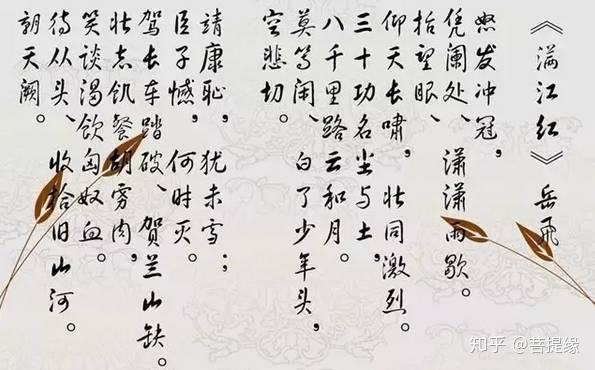 《满江红》岳飞
怒发冲冠,
凭阑处、潇潇雨歇。
抬望眼、
仰天长啸,壮同激烈。
三十功名尘与土,
八千里路云和月。
莫等闲、白了少年头,
空悲切。
靖康耻,犹未雪;
臣子憾,何时灭。
驾长车踏破、贺兰山缺。
壮志饥餐胡虏肉,
笑谈渴饮匈奴血。
待从头、收拾旧山河。
朝天阙。
知乎 @菩提缘